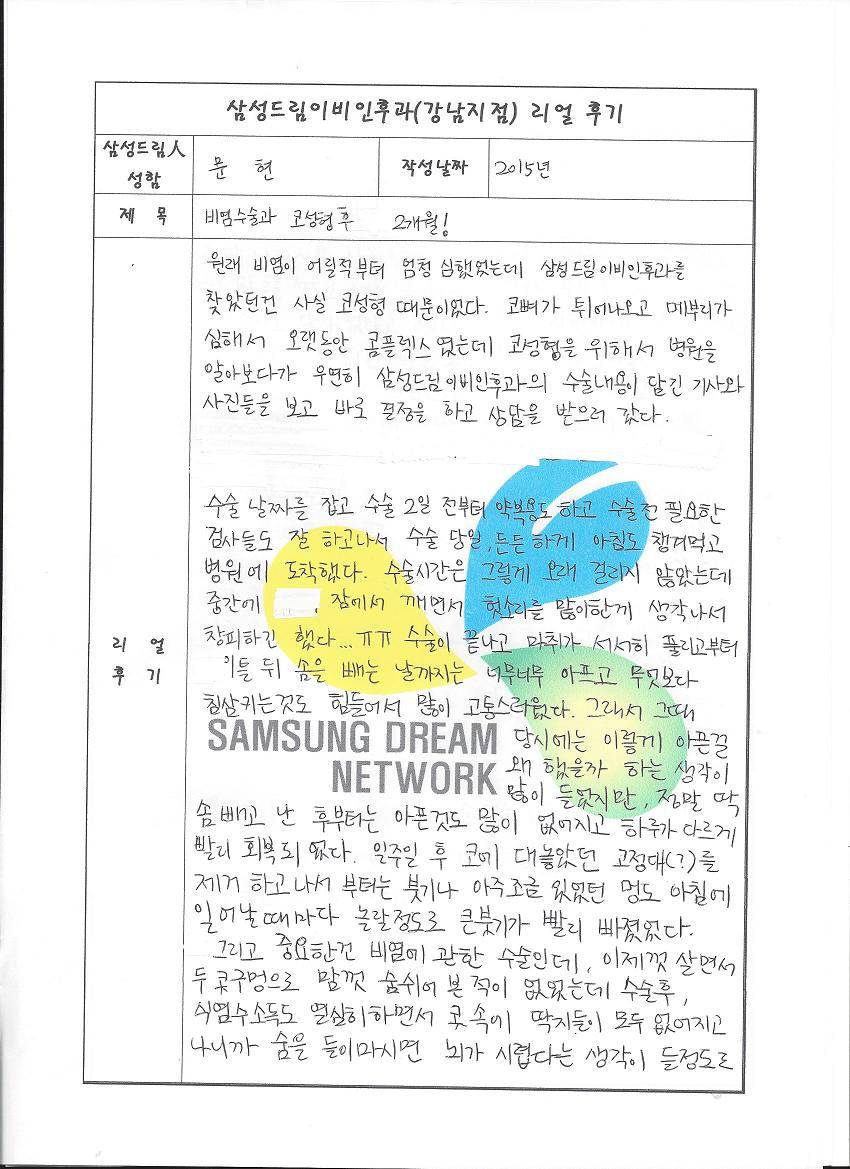 삼성드림이비인후과(강남지점) 리얼 후기
삼성드림人 성함
문 현
작성날짜
2015년
제 목
비염수술과 코성형 후 2개월!
원래 비염이 어릴적부터 엄청 심했었는데 삼성드림이비인후과를
찾았던건 사실 코성형 때문이었다. 코뼈가 튀어나오고 메부리가
심해서 오랫동안 콤플렉스였는데 코성형을 위해서 병원을
알아보다가 우연히 삼성드림이비인후과의 수술내용이 담긴 기사와
사진들을 보고 바로 결정을 하고 상담을 받으러 갔다.
수술 날짜를 잡고 수술 2일 전부터 약복용도 하고 수술전 필요한
검사들도 잘 하고나서 수술 당일, 든든하게 아침도 챙겨먹고
병원에 도착했다. 수술시간은 그렇게 오래 걸리지 않았는데
중간에 , 잠에서 깨면서 헛소리를 많이한게 생각나서
창피하긴 했다...ㅠㅠ 수술이 끝나고 마취가 서서히 풀리고부터
이틀 뒤 솜을 빼는 날까지는 너무너무 아프고 무엇보다
침삼키는것도 힘들어서 많이 고통스러웠다. 그래서 그때
당시에는 이렇게 아픈걸
왜 했을까 하는 생각이
많이 들었지만, 정말 딱
SAMSUNG DREAM
NETWORK
솜 빼고 난 후부터는 아픈것도 많이 없어지고 하루가 다르게
빨리 회복되었다. 일주일 후 코에 대놓았던 고정대(?)를
제거 하고나서 부터는 붓기나 아주조금 있었던 멍도 아침에
일어날때마다 놀랄정도로 큰붓기가 빨리 빠졌었다.
그리고 중요한건 비염에 관한 수술인데, 이제껏 살면서
두 콧구멍으로 맘껏 숨쉬어 본 적이 없었는데 수술후,
식염수소독도 열심히하면서 콧속에 딱지들이 모두 없어지고
나니까 숨을 들이마시면 뇌가 시렵다는 생각이 들정도로
리 얼
후 기